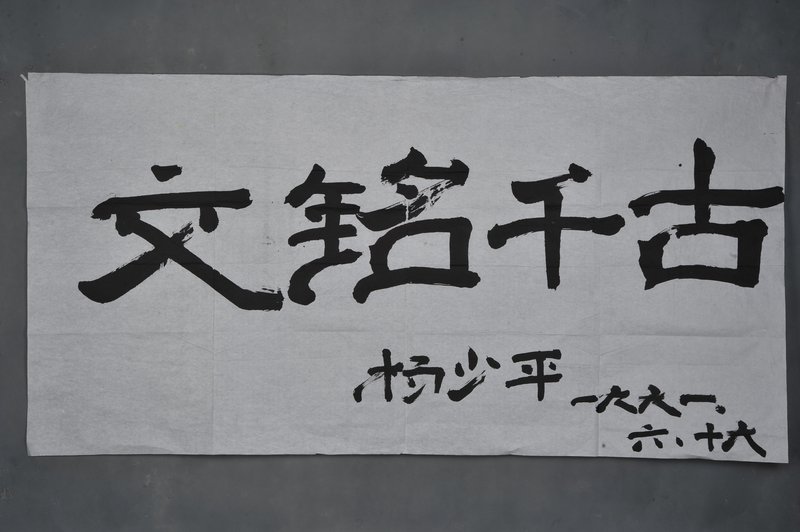 文铭千古
杨少平
一九九一、
六、十六